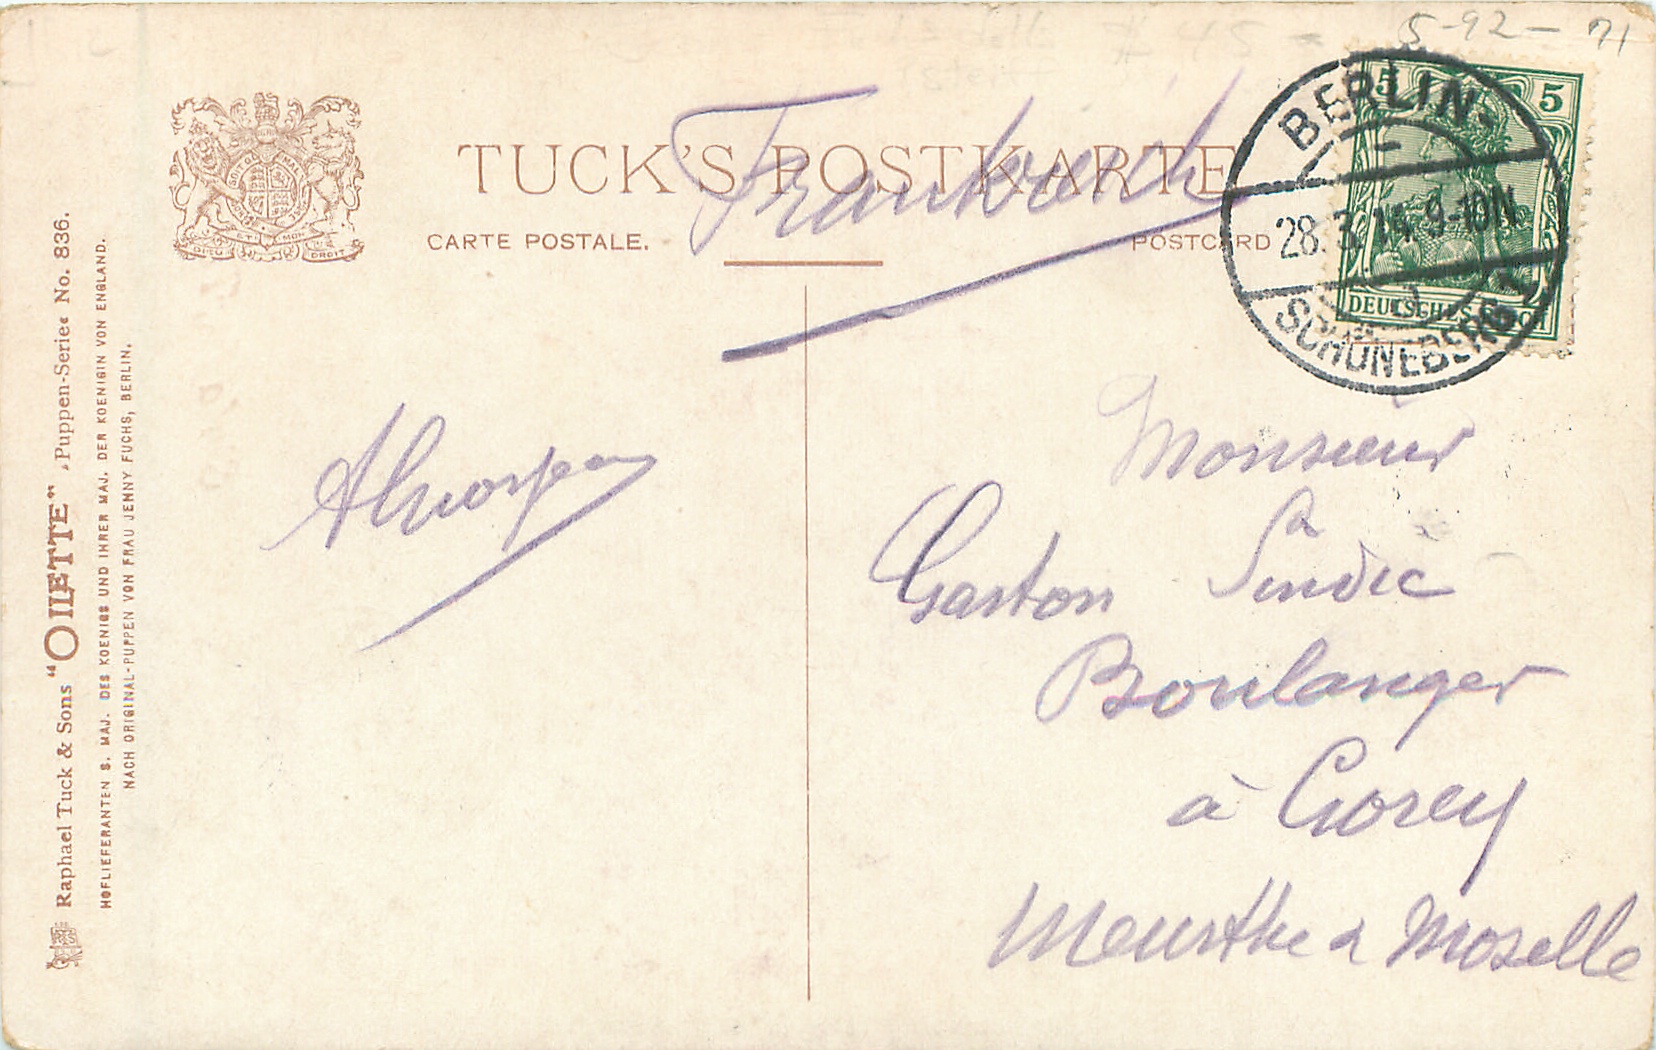 5-92-71
TUCK'S POSTKARTE
CARTE POSTALE.
POSTCARD
Frankreich
BERLIN-
28.3.14. 9-10N
SCHÖNEBERG 1
5 5
DEUTSCHES REICH
DIEU ET MON DROIT
Monsieur
Gaston Sindic
Boulanger
à Corey
Meurthe & Moselle
Raphael Tuck & Sons "OILETTE" „Puppen-Serie" No. 836.
HOFLIEFERANTEN S. MAJ. DES KOENIGS UND IHRER MAJ. DER KOENIGIN VON ENGLAND.
NACH ORIGINAL-PUPPEN VON FRAU JENNY FUCHS, BERLIN.